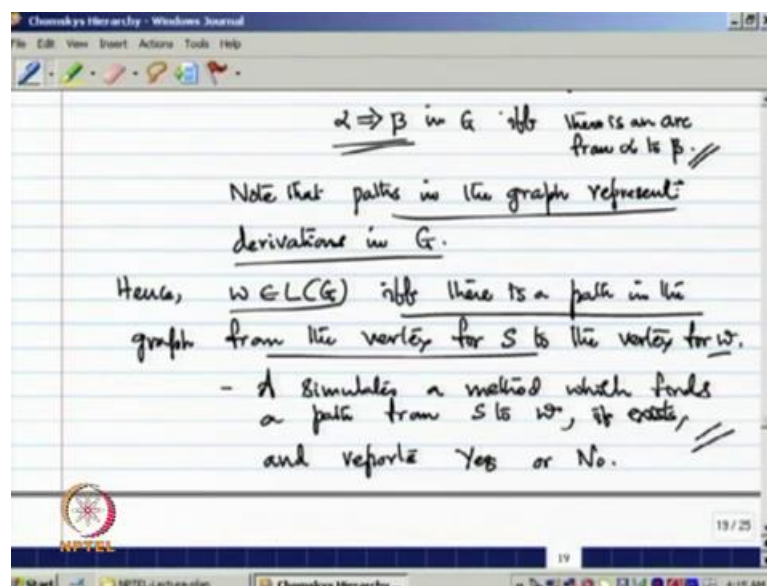 Chomskys Hierarchy - Windows Journal
File Edit View Insert Actions Tools Help
α ⇒ β in G iff there is an arc
from α to β.
Note that paths in the graph represent
derivations in G.
Hence, w ∈ L(G) iff there is a path in the
graph from the vertex for S to the vertex for w.
- A simulates a method which finds
a path from S to w, if exists,
and reports Yes or No.
NPTEL
19 / 25
19
Start NPTEL-Lecture-plan Chomskys Hierarchy...